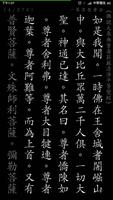 如是我聞。一時佛在王舍城耆闍崛山
中。與大比丘眾萬二千人俱。一切大
聖。神通已達。其名曰。尊者憍陳如。
尊者舍利弗。尊者大目犍連。尊者
迦葉。尊者阿難等。而為上首。又有
普賢菩薩。文殊師利菩薩。彌勒菩薩